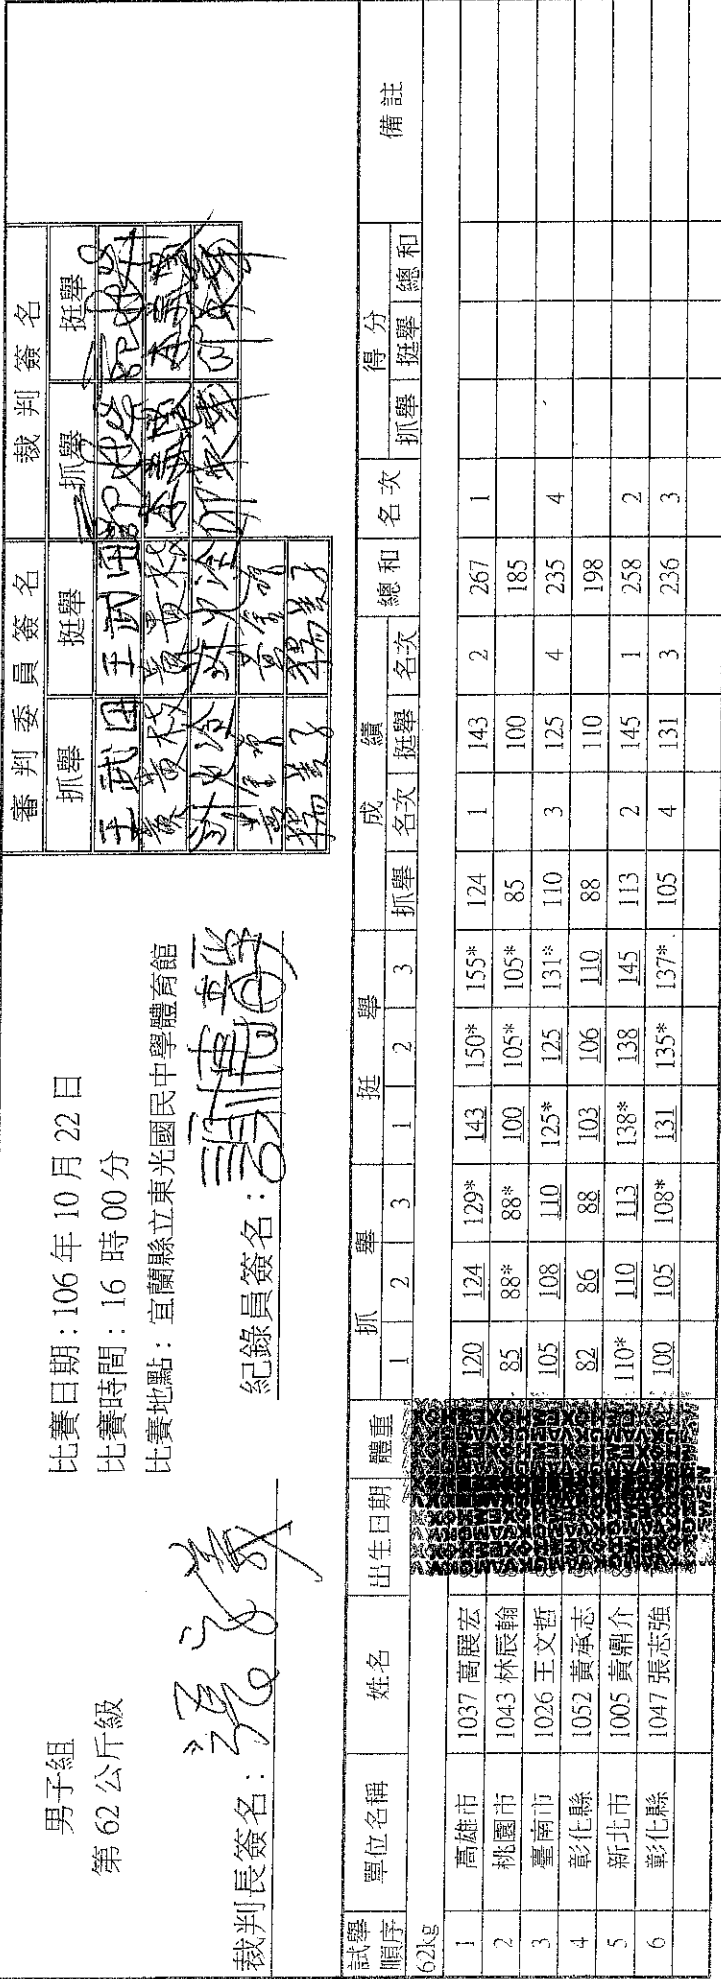 男子組
第 62 公斤級
比賽日期：106 年 10 月 22 日
比賽時間：16 時 00 分
比賽地點：宜蘭縣立東光國民中學體育館
裁判長簽名：
紀錄員簽名：
審判委員簽名 裁判簽名
抓舉 挺舉 抓舉 挺舉
王武田 王武田
試舉順序 單位名稱 姓名 出生日期 體重 抓舉 挺舉 成績 總和 名次 得分 備註
1 2 3 1 2 3 抓舉 名次 挺舉 名次 抓舉 挺舉 總和
62kg
1 高雄市 1037 高展宏 120 124 129* 143 150* 155* 124 1 143 2 267 1
2 桃園市 1043 林辰翰 85 88* 88* 100 105* 105* 85 100 185
3 臺南市 1026 王文哲 105 108 110 125* 125 131* 110 3 125 4 235 4
4 彰化縣 1052 黃承志 82 86 88 103 106 110 88 110 198
5 新北市 1005 黃鼎介 110* 110 113 138* 138 145 113 2 145 1 258 2
6 彰化縣 1047 張志強 100 105 108* 131 135* 137* 105 4 131 3 236 3